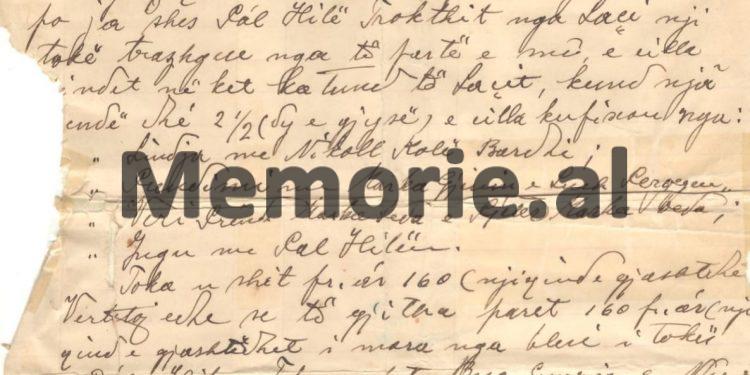 po ja shes Pál Hilë Troktkit nga Laci nji
tokë trazhgue nga të partë e mij, e cilla
indet në ket katund të Lacit, kund një
endë dhé 2 1/2 (dy e gjysë) e cilla kufizon nga:
" Lindja me Nikoll Kolë Bardhi;
" Marka Gjinin e
" Veri Prend Marka e Marka
" Jugu me Pal Hilën.
Toka u shit fr. ár 160 (njiqind e gjashtdhe
Vertetoj edhe se të gjitha paret 160 fr. ár (nji
qind e gjashtëdhet i mora nga blesi i tokës
Memorie.al